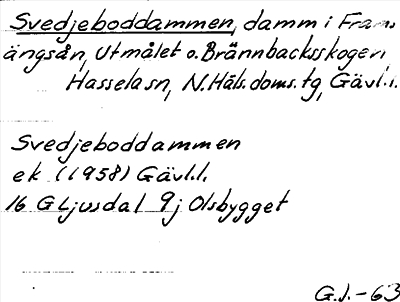 Svedjeboddammen, damm i Fram-
ängsån, Utmålet o. Brännbacksskogen,
Hassela sn, N. Häls. doms. tg, Gävl. l.
Svedjeboddammen
ek (1958) Gävl. l.
16 G Ljusdal 9j Olsbygget
G. J. -63